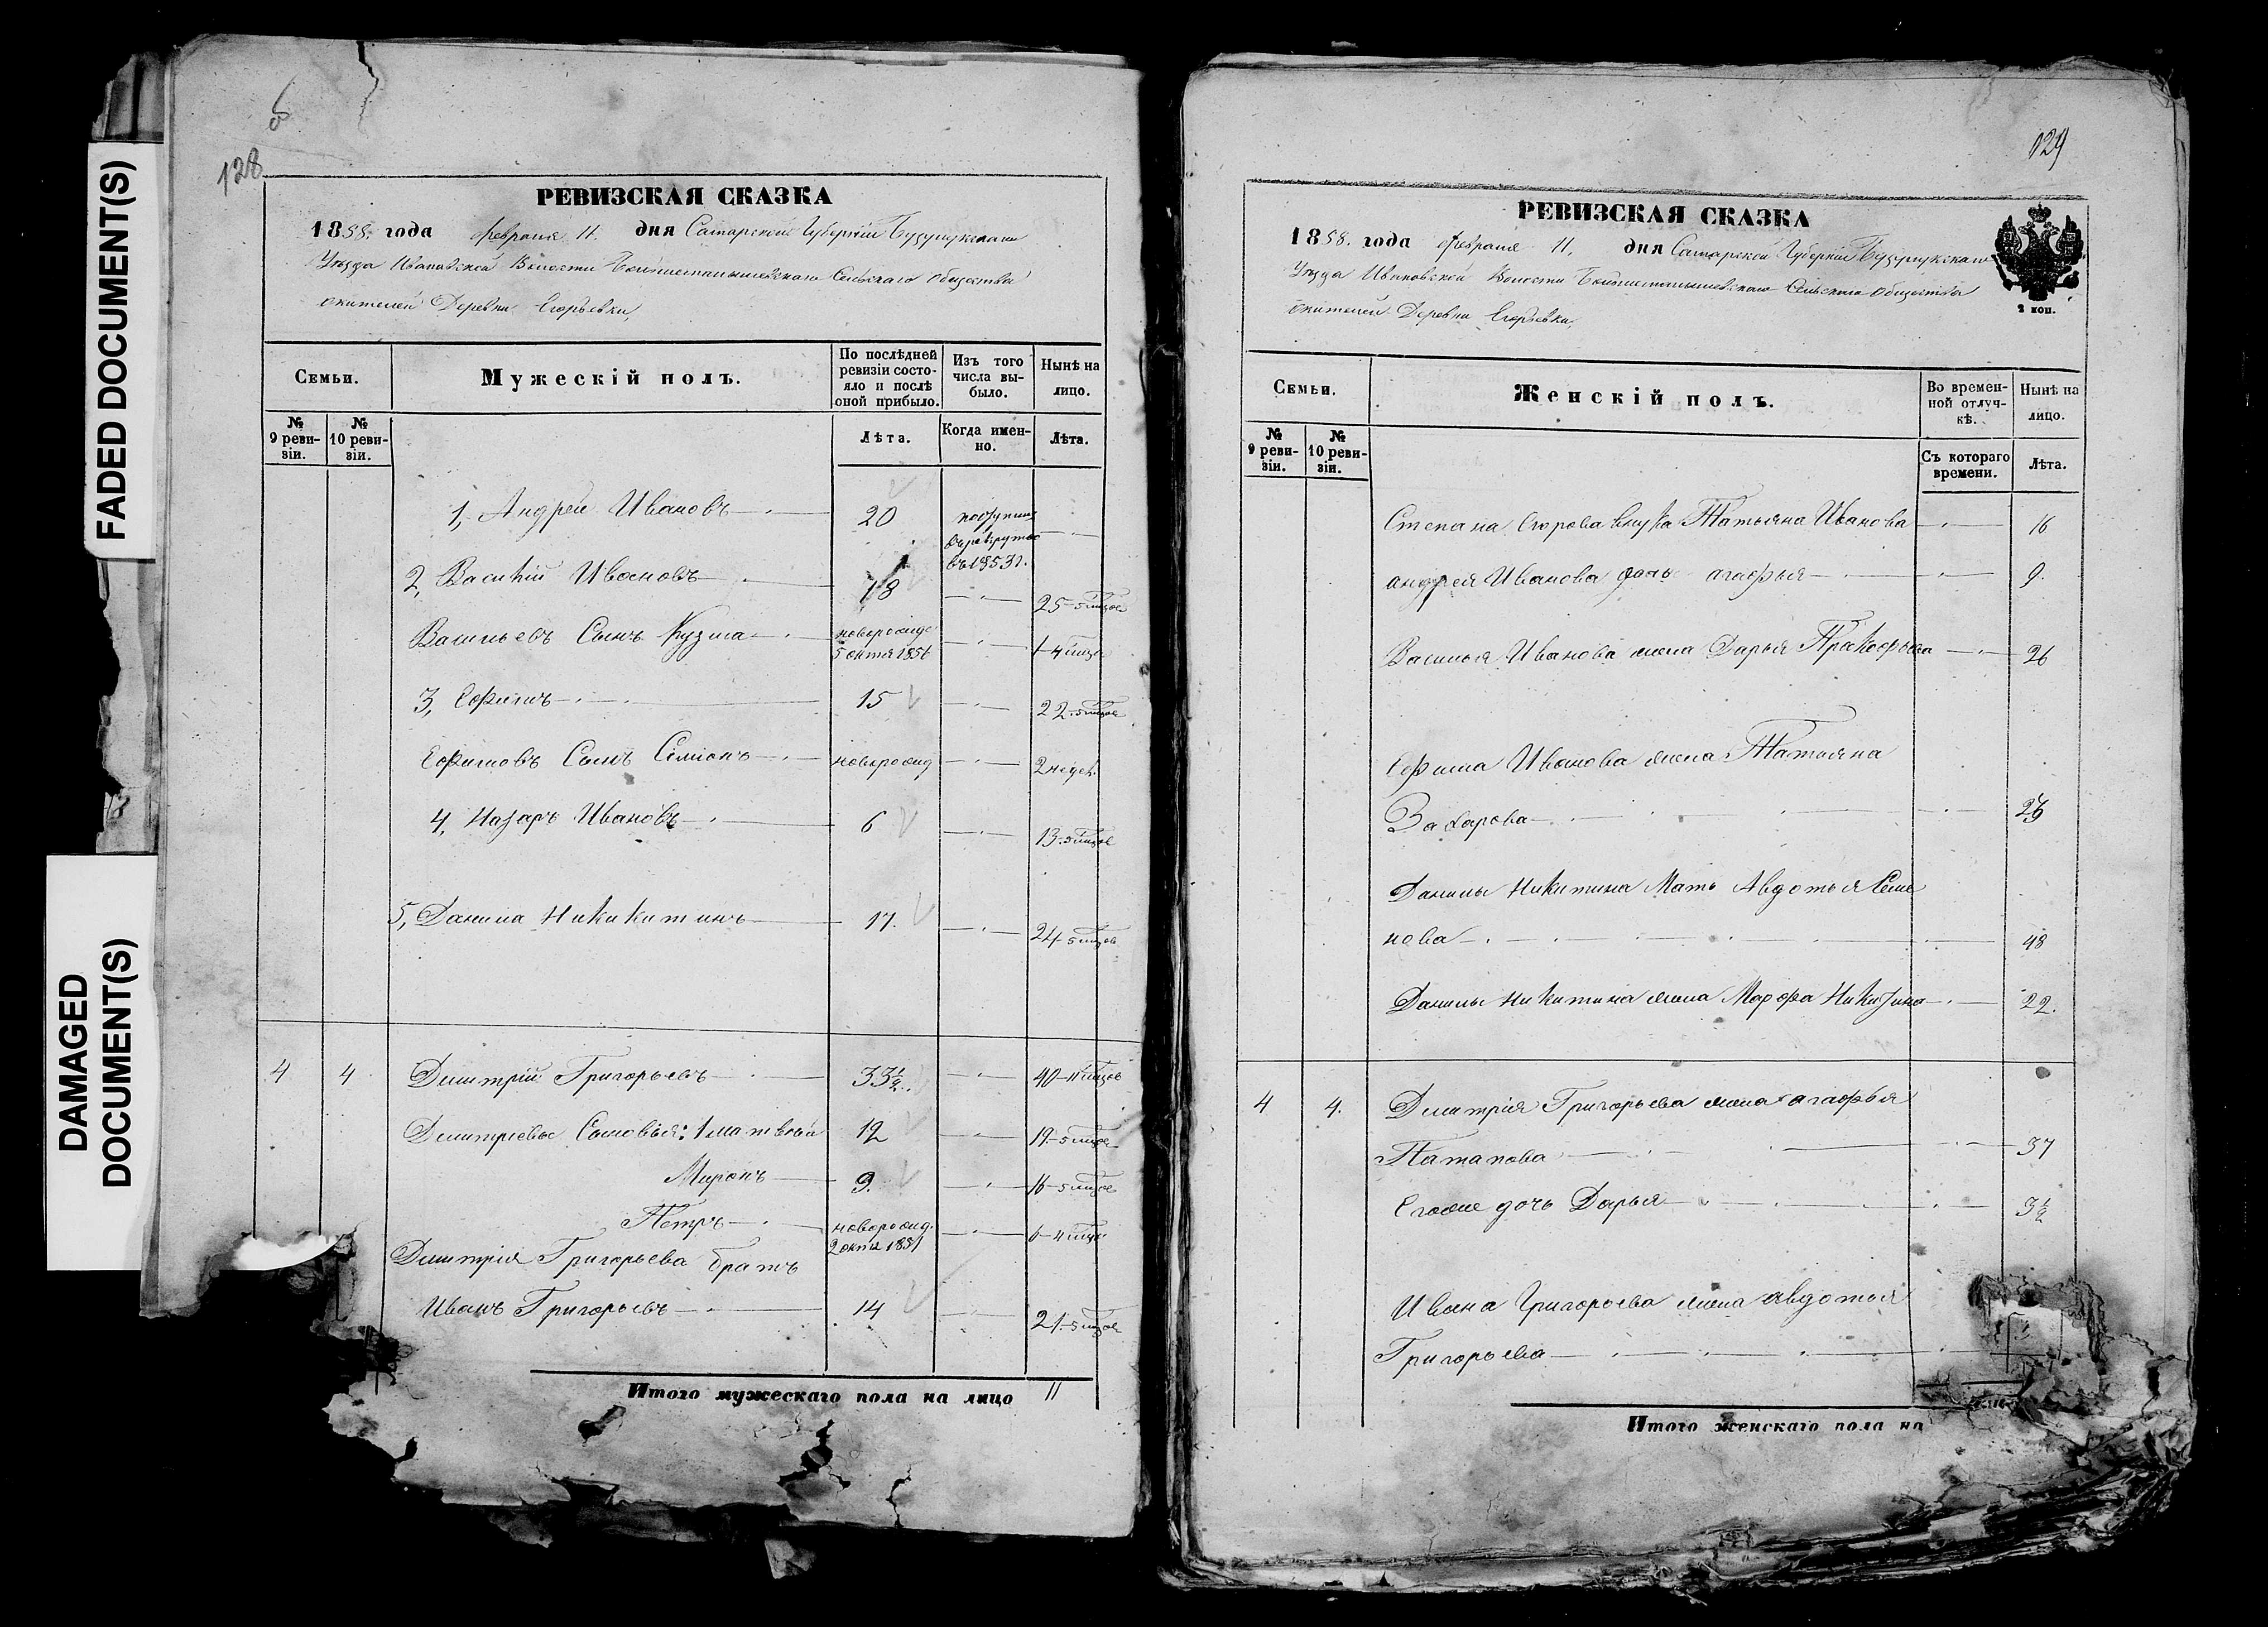 FADED DOCUMENT(S)
DAMAGED
DOCUMENT(S)
128
РЕВИЗСКАЯ СКАЗКА
1858. года февраля 11. дня Самарской Губерніи Бузулукскаго
Уѣзда Ивановской Волости Сельскаго Общества
жителей Деревни Егорьевки,
Семьи.
Мужескій полъ.
По послѣдней ревизіи состояло и послѣ оной прибыло.
Изъ того числа выбыло.
Нынѣ на лицо.
№ 9 ревизіи.
№ 10 ревизіи.
Лѣта.
Когда именно.
Лѣта.
1, Андрей Ивановъ 20 въ рекруты въ 1853 г.
2, Василій Ивановъ 18 25-5
Васильевъ Сынъ Кузма новорожд 5 октя 1856 1-4
3, Ефимъ 15 22-5
Ефимовъ Сынъ Семіонъ новорожд 2 недел.
4, Назаръ Ивановъ 6 13-5
5, Данила Никикитинъ 17. 24-5
4 4 Дмитрій Григорьевъ 33½. 40-11
Дмитріевы Сыновья: 1 матвѣй 12 19-5
Миронъ 9. 16-5
Петръ новорожд. 2 октя 1851 6-4
Дмитрія Григорьева братъ
Иванъ Григорьевъ 14 21-5
Итого мужескаго пола на лицо 11
129
РЕВИЗСКАЯ СКАЗКА
1858. года февраля 11, дня Самарской Губерніи Бузулукскаго
Уѣзда Ивановской Волости Сельскаго Общества
жителей Деревни Егорьевки,
2 коп.
Семьи.
Женскій полъ.
Во временной отлучкѣ.
Нынѣ на лицо.
№ 9 ревизіи.
№ 10 ревизіи.
Съ котораго времени.
Лѣта.
Степана Егорова внука Татьяна Иванова 16
андрея Иванова дочь агафья 9.
Василья Иванова жена Дарья Пракофьева 26
Ефима Иванова жена Татьяна
Захарова
Данилы Никитина Мать Авдотья Семе
нова 48
Данилы Никитина жена Марфа Никитина 22.
4 4. Дмитрія Григорьева жена агафья
Патапова 37
Егоже дочь Дарья 3½
Ивана Григорьева жена авдотья
Григорьева
Итого женскаго пола на